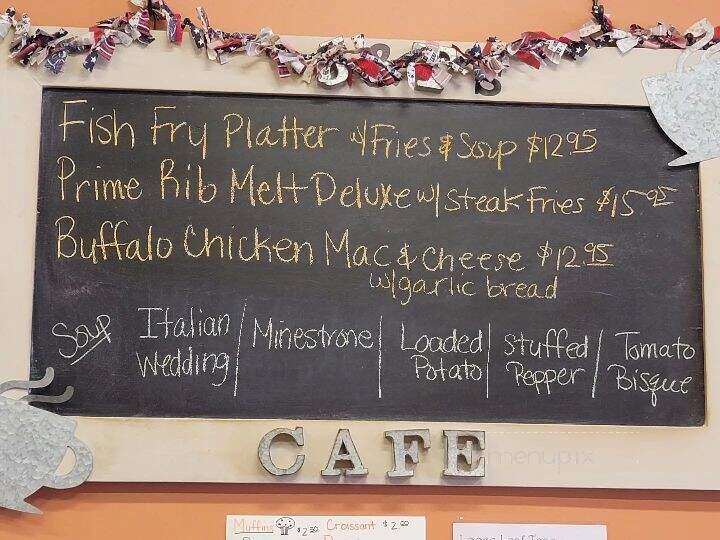 Fish Fry Platter w/ Fries & Soup $12.95
Prime Rib Melt Deluxe w/ Steak Fries $15.95
Buffalo Chicken Mac & Cheese $12.95
w/garlic bread
Soup Italian Wedding / Minestrone | Loaded Potato | Stuffed Pepper / Tomato Bisque
CAFE
menupix
Muffins $2.50 Croissant $2.00